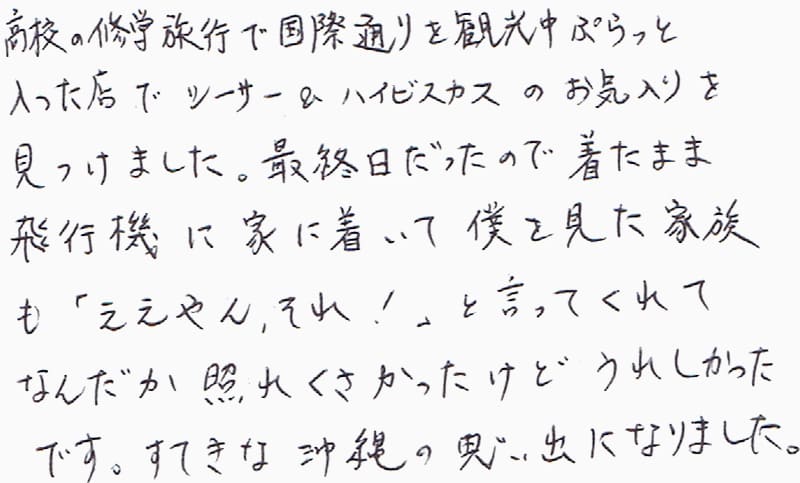 高校の修学旅行で国際通りを観光中ぷらっと
入った店でシーサー&ハイビスカスのお気入りを
見つけました。最終日だったので着たまま
飛行機に家に着いて僕を見た家族
も「ええやん,それ!」と言ってくれて
なんだか照れくさかったけどうれしかった
です。すてきな沖縄の思い出になりました。